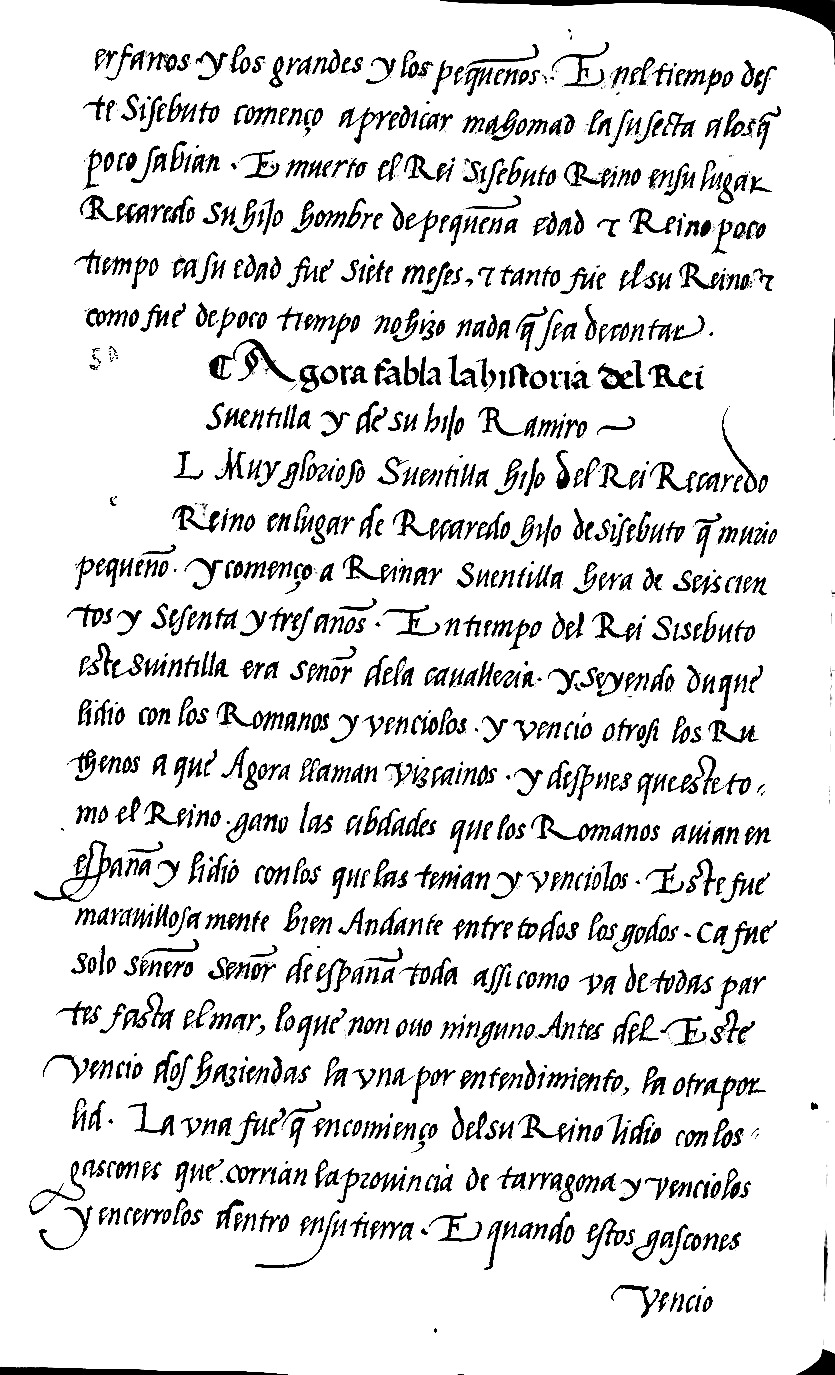 erfanos y los grandes y los pequen̄os. E nel tiempo des
te Sisebuto començo a predicar mahomad la su secta a los q̄
poco sabian. E muerto el Rei Sisebuto Reino en su lugar
Recaredo su hijo hombre de pequen̄a edad ⁊ Reino poco
tiempo ca su edad fue siete meses, ⁊ tanto fue el su Reino ⁊
como fue de poco tiempo no hizo nada q̄ sea de contar.
50
¶ Agora fabla la historia del Rei
Suentilla y de su hijo Ramiro
L Muy glorioso Suentilla hijo del Rei Recaredo
e
Reino en lugar de Recaredo hijo de Sisebuto q̄ murio
pequen̄o. y començo a Reinar Suentilla hera de seiscien
tos y sesenta y tres an̄os. En tiempo del Rei Sisebuto
este Suintilla era sen̄or de la caualleria. y seyendo duque
lidio con los Romanos y venciolos. y vencio otrosi los Ru
thenos a que Agora llaman vizcainos. y despues que este to
mo el Reino. gano las cibdades que los Romanos auian en
espan̄a y lidio con los que las tenian y venciolos. Este fue
marauillosa mente bien Andante entre todos los godos. Ca fue
solo sen̄ero sen̄or de espan̄a toda assi como va de todas par
tes fasta el mar, lo que non ouo ninguno Antes del. Este
vencio dos haziendas la vna por entendimiento, la otra por
lid. La vna fue q̄ en comienço del su Reino lidio con los
gascones que corrian la prouincia de tarragona y venciolos
y encerrolos dentro en su tierra. E quando estos gascones
vencio